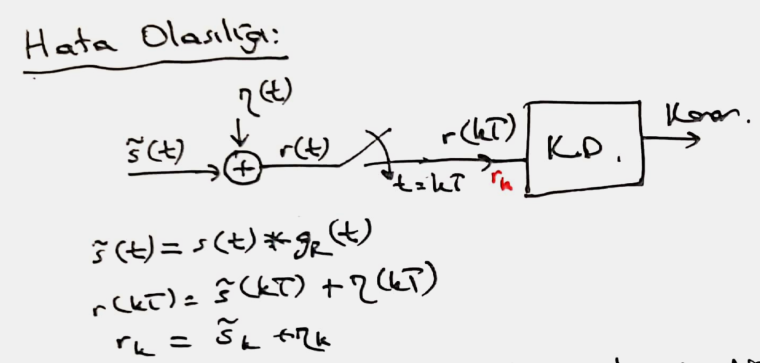 Hata Olasılığı:
η(t)
s̃(t)
r(t)
t=kT
r(kT)
r_k
K.D.
Karar.
s̃(t) = s(t) * g_R(t)
r(kT) = s̃(kT) + η(kT)
r_k = s̃_k + η_k